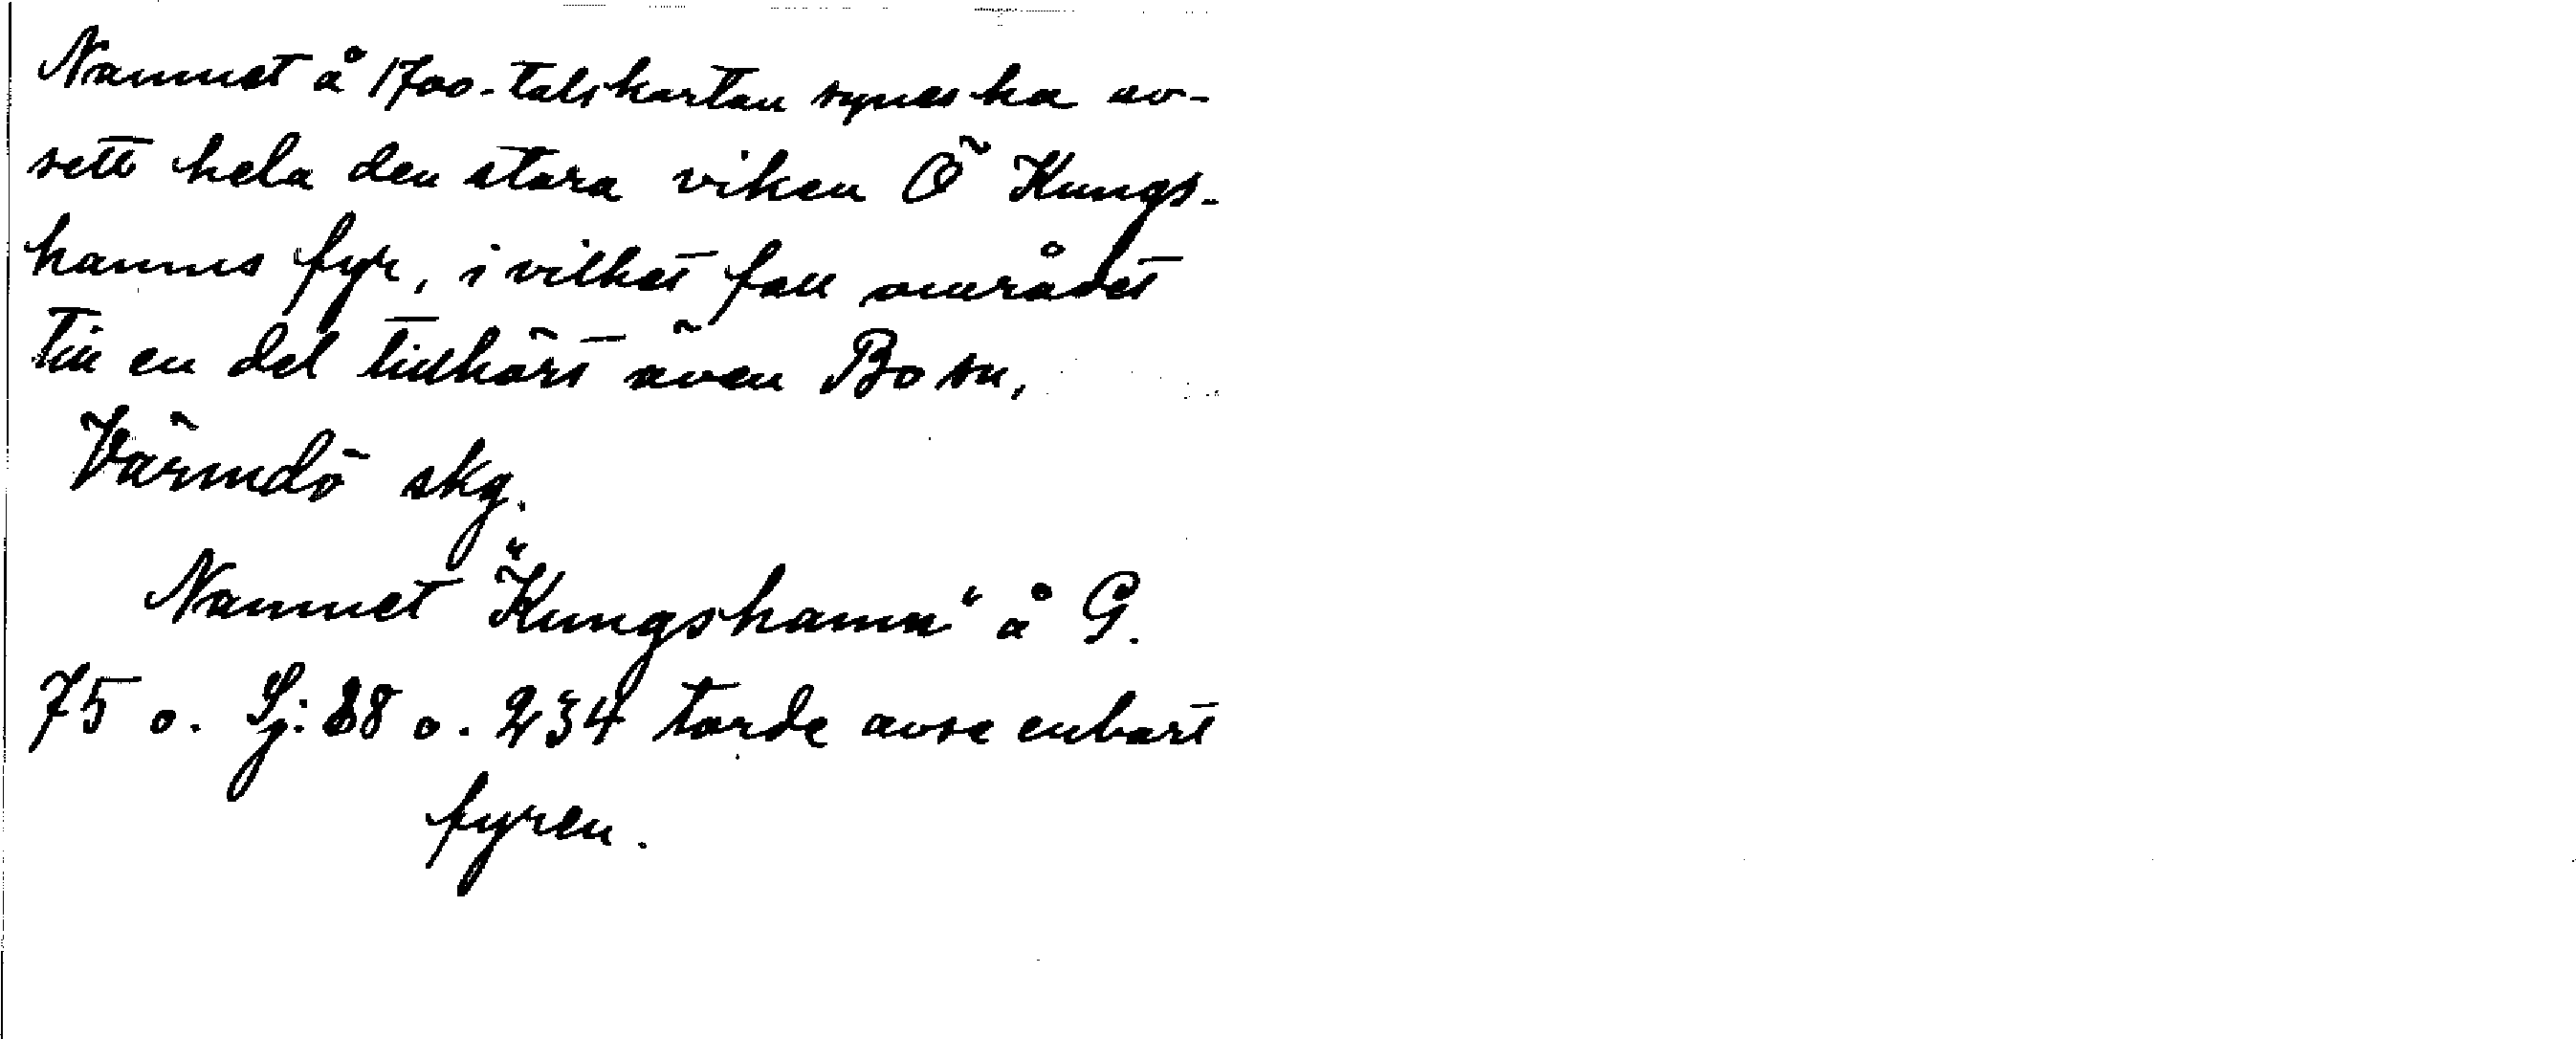 Namnet å 1700-talskartan synes ha av-
sett hela den stora viken Ö Kungs-
hamns fyr, i vilket fall området
till en del tillhört även Bo sn,
Värmdö skg.
Namnet "Kungshamn" å G.
75 o. Sj: 28 o. 234 torde avse enbart
fyren.